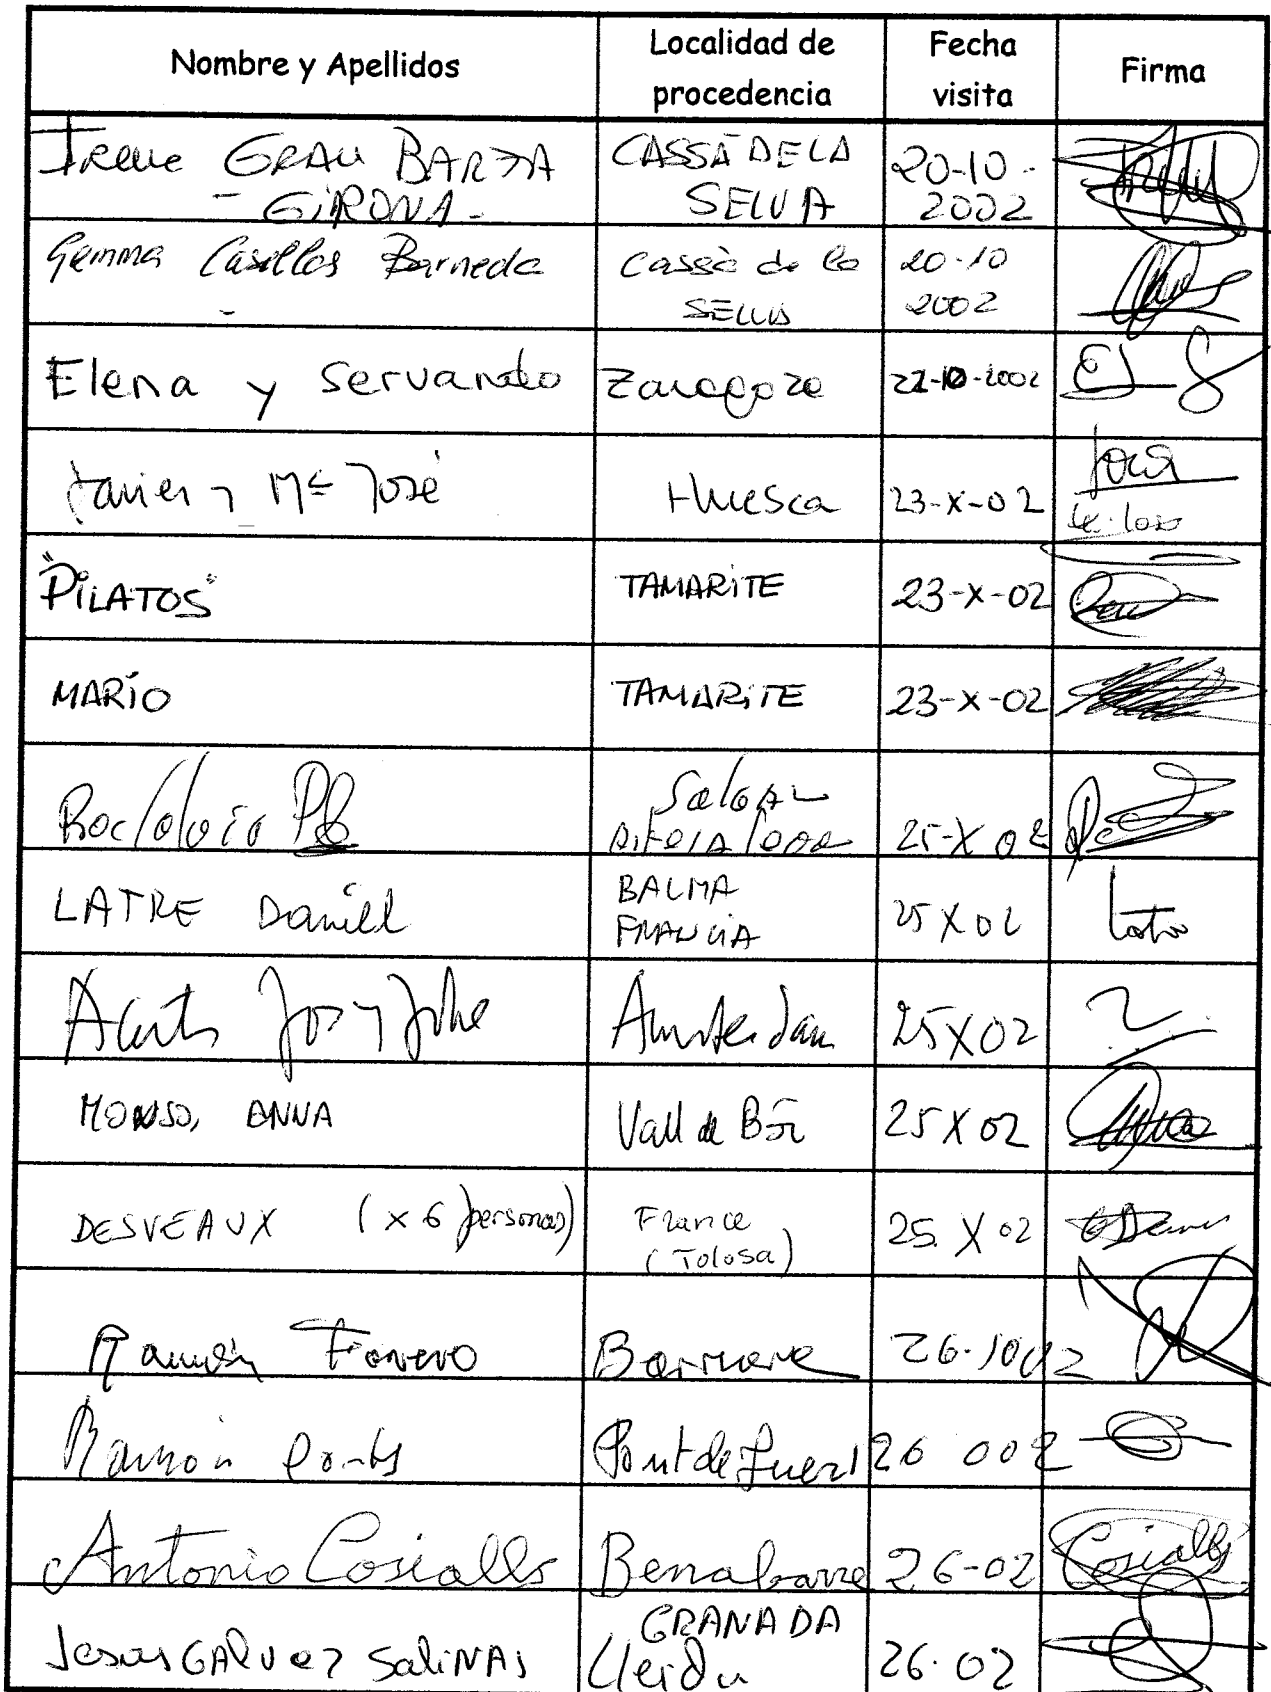 Nombre y Apellidos
Localidad de
procedencia
Fecha
visita
Firma
Irene GRAU BARTA
- GIRONA -
CASSÀ DE LA
SELVA
20-10-
2002
Gemma Casellas Barneda
Cassà de la
SELVA
20-10
2002
Elena y Servando
Zaragoza
22-10-2002
Javier y Mª José
Huesca
23-X-02
"PILATOS"
TAMARITE
23-X-02
MARIO
TAMARITE
23-X-02
Salou
25-X 02
LATRE Daniel
BALMA
FRANCIA
25 X 02
Jos y Joke
Amsterdam
25 X 02
MONSO, ANNA
Vall de Boí
25 X 02
DESVEAUX (x 6 personas)
France
(Tolosa)
25. X 02
Ramón
Barruera
26-10 02
Ramón
Pont de Suert
26 002
Antonio Cosialls
Benabarre
26-02
Cosialls
Jesus GALVEZ SALINAS
GRANADA
Lleida
26-02